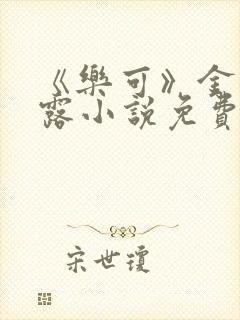 《樂可》金
露小說免費
宋世瓊